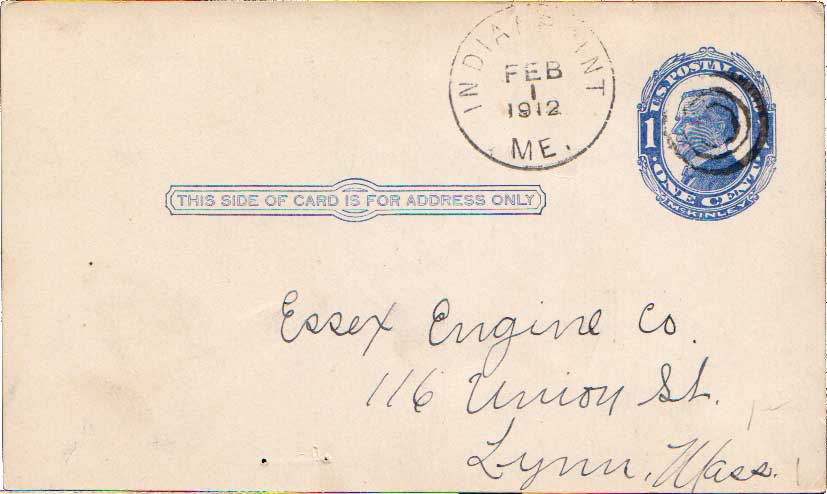 INDIAN POINT
FEB
1
1912
ME.
U.S. POSTAL
1
ONE CENT
McKINLEY
THIS SIDE OF CARD IS FOR ADDRESS ONLY
Essex Engine Co.
116 Union St.
Lynn, Mass.